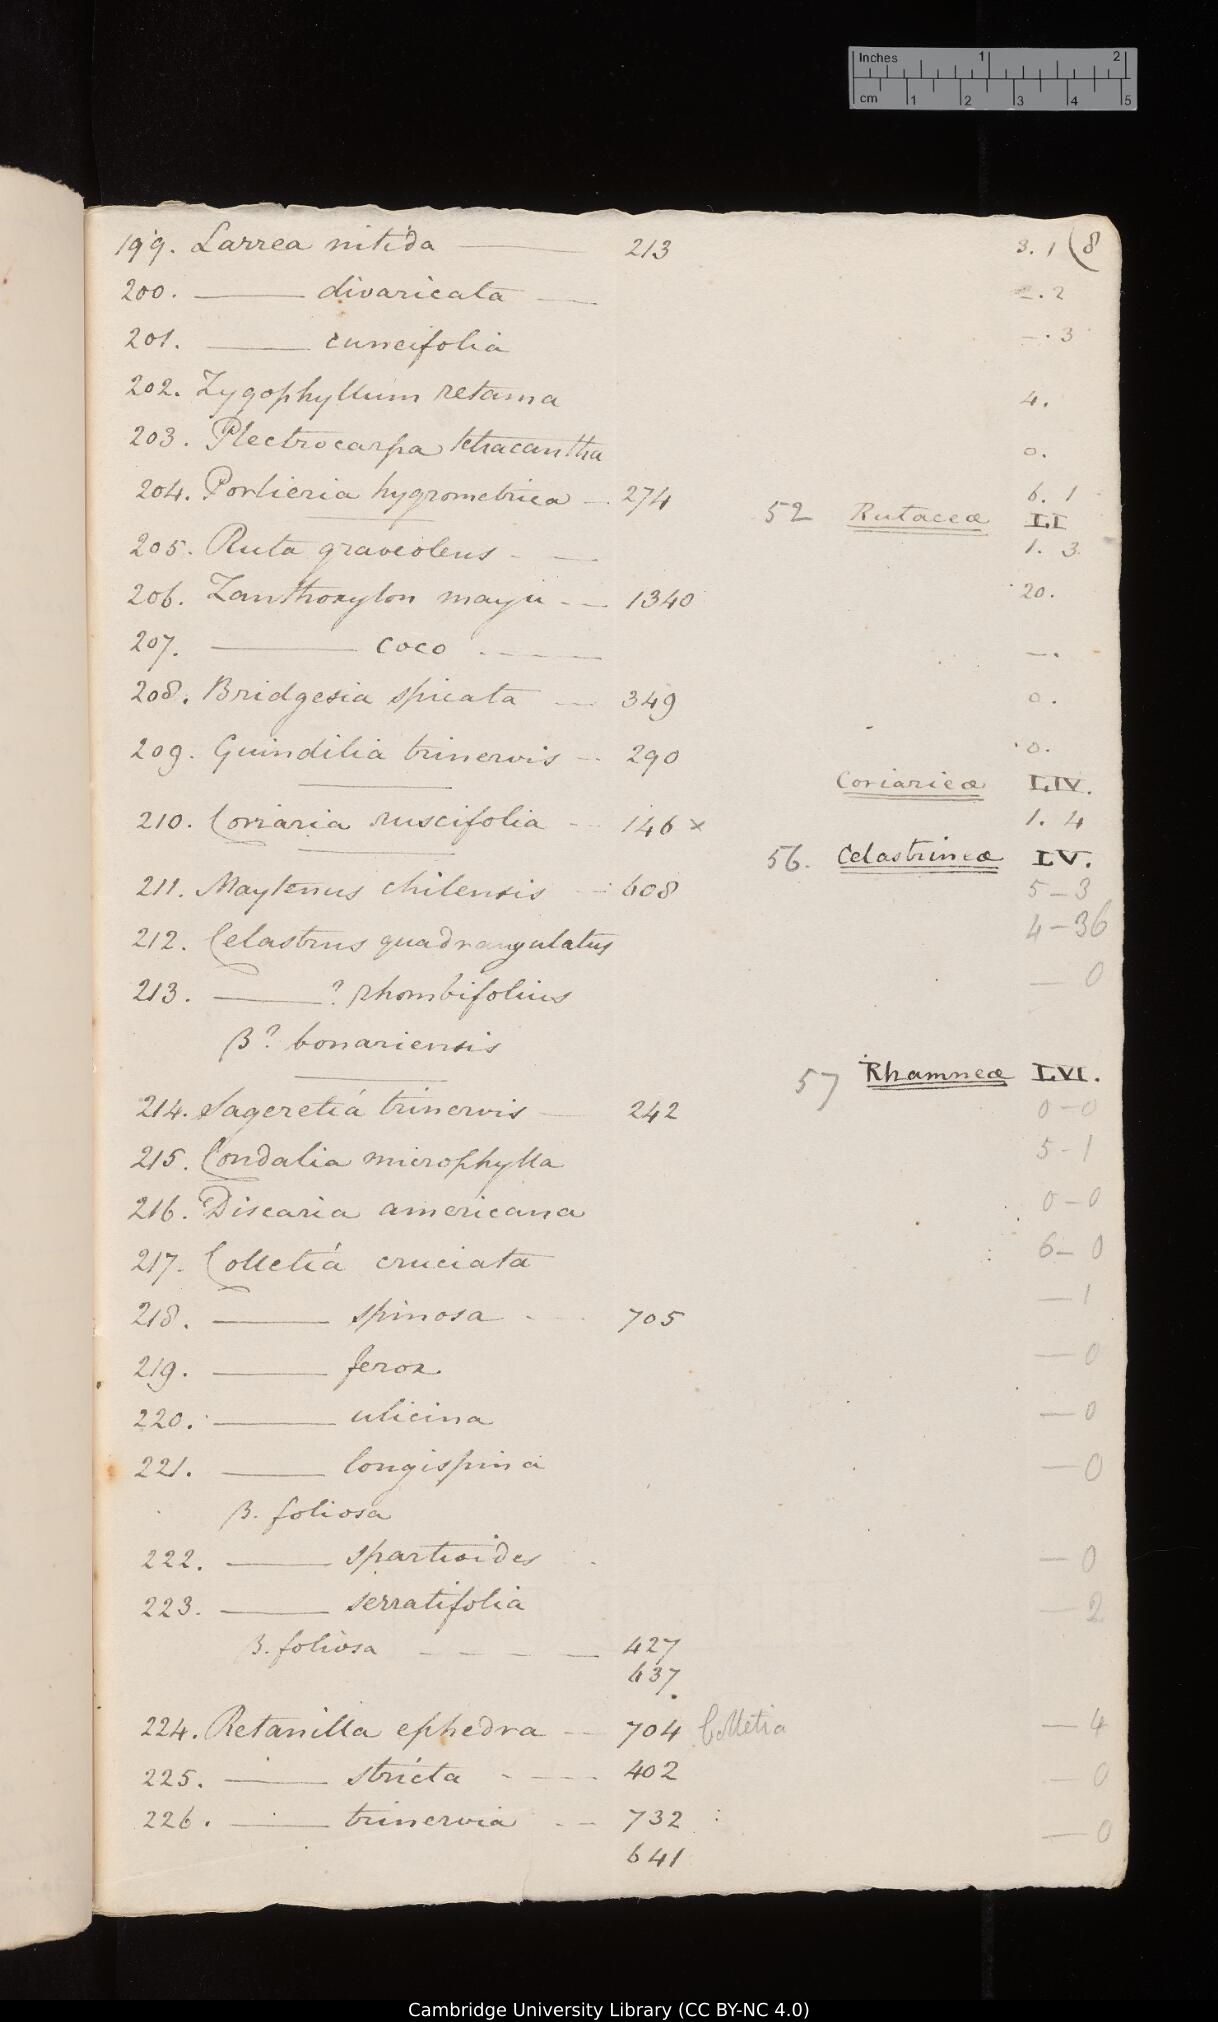 Inches 1 2
cm 1 2 3 4 5
199. Larrea nitida —— 213 3. 1 (8
200. —— divaricata — –. 2
201. —— cuneifolia –. 3
202. Zygophyllum retama 4.
203. Plectrocarpa tetracantha 0.
204. Porlieria hygrometrica – 274 6. 1
52 Rutaceæ LI
205. Ruta graveolens - — 1. 3
206. Zanthoxylon mayu - — 1340 20.
207. —— coco - - - – –.
208. Bridgesia spicata — 349 0.
209. Guindilia trinervis – 290 0.
Coriarieæ LIV.
210. Coriaria ruscifolia – 146 × 1. 4
56. Celastrineæ LV.
211. Maytenus chilensis – 608 5–3
212. Celastrus quadrangulatus 4–36
213. —— ? rhombifolius — 0
β? bonariensis
57 Rhamneæ LVI.
214. Sageretia trinervis — 242 0–0
215. Condalia microphylla 5–1
216. Discaria americana 0–0
217. Colletia cruciata 6–0
218. —— spinosa - - - 705 —1
219. —— ferox — 0
220. —— ulicina — 0
221. —— longispina — 0
β. foliosa
222. —— spartioides — 0
223. —— serratifolia — 2
β. foliosa – – – – — 427
637
224. Retanilla ephedra – 704 Colletia — 4
225. —— stricta - - — 402 — 0
226. —— trinervia - – 732 — 0
641
Cambridge University Library (CC BY-NC 4.0)